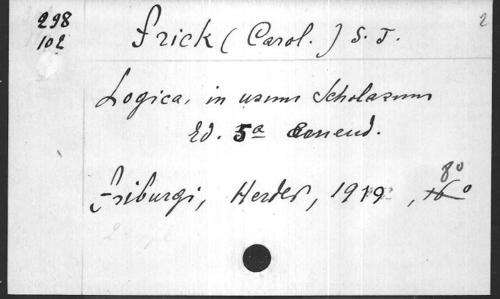 298 Frick (Carol.) S. J. 2
102
Logica, in usum Scholarum
Ed. 5a emend.
8o
Friburgi, Herder, 1919,